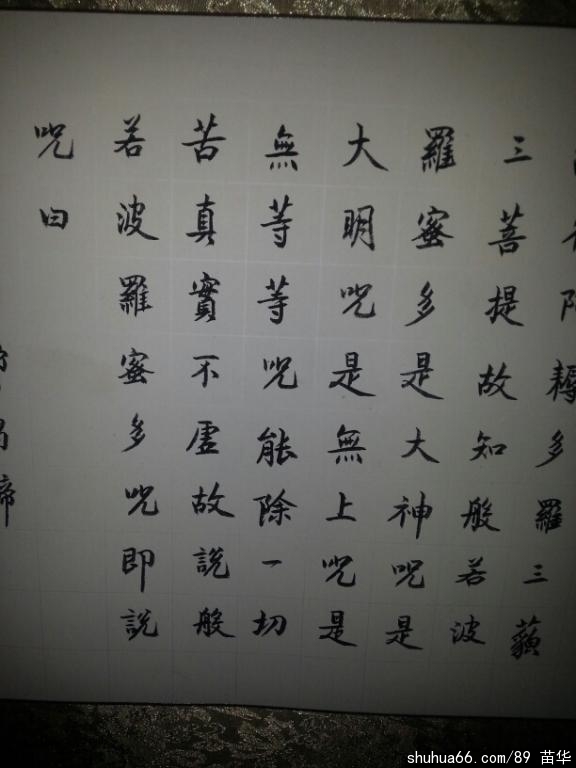 阿耨多羅三藐
三菩提故知般若波
羅蜜多是大神呪是
大明呪是無上呪是
無等等呪能除一切
苦真實不虛故說般
若波羅蜜多呪即說
呪曰
shuhua66.com/89 苗华